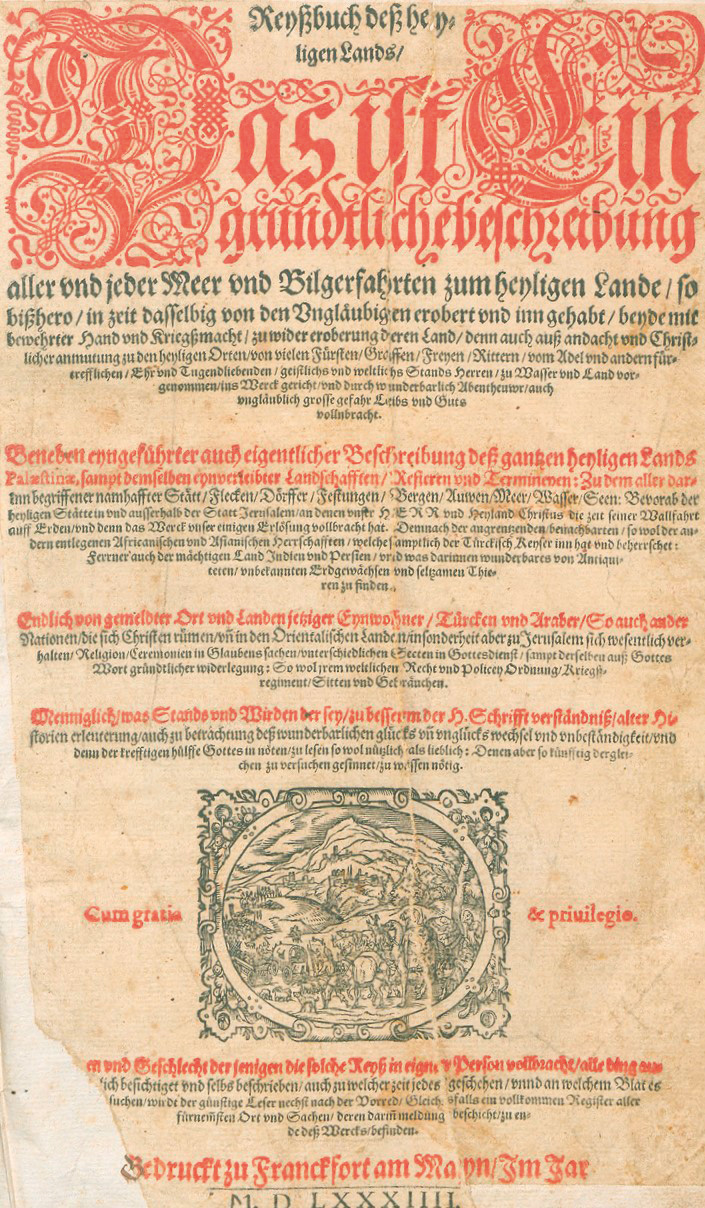 Reyßbuch deß hey⸗
ligen Lands/
Das ist Ein
gründtliche beschreibung
aller vnd jeder Meer vnd Bilgerfahrten zum heyligen Lande / so
bißhero / in zeit dasselbig von den Vngläubigen erobert vnd inn gehabt / beyde mit
bewehrter Hand vnd Kriegßmacht / zu wider eroberung deren Land / denn auch auß andacht vnd Christ⸗
licher anmutung zu den heyligen Orten / von vielen Fürsten / Graffen / Freyen / Rittern / vom Adel vnd andern für⸗
trefflichen / Ehr vnd Tugendliebenden / geistlichs vnd weltlichs Stands Herren / zu Wasser vnd Land vor⸗
genommen / ins Werck gericht / vnd durch wunderbarlich Abenthewr / auch
vngläublich grosse gefahr Leibs vnd Guts
vollnbracht.
Beneben eyngeführter auch eigentlicher Beschreibung deß gantzen heyligen Lands
Palæstinæ, sampt demselben eynverleibter Landschafften / Refieren vnd Termineyen: Zu dem aller dar⸗
inn begriffener namhaffter Stätt / Flecken / Dörffer / Festungen / Bergen / Auwen / Meer / Wasser / Seen: Bevorab der
heyligen Stätte in vnd ausserhalb der Statt Jerusalem / an denen vnser HERR vnd Heyland Christus die zeit seiner Wallfahrt
auff Erden / vnd denn das Werck vnser einigen Erlösung vollbracht hat. Demnach der angrentzenden / benachbarten / so wol der an⸗
dern entlegenen Africanischen vnd Asianischen Herrschafften / welche sampt lich der Türckisch Keyser inn hat vnd beherrschet:
Ferrner auch der mächtigen Land Indien vnd Persien / vnd was darinnen wunderbares von Antiqui⸗
teten / vnbekannten Erdgewächsen vnd seltzamen Thie⸗
ren zu finden.
Endlich von gemeldter Ort vnd Landen jetziger Eynwohner / Türcken vnd Araber / So auch ander
Nationen / die sich Christen rümen / vñ in den Orientalischen Landen / insonderheit aber zu Jerusalem sich wesentlich ver⸗
halten / Religion / Ceremonien in Glaubens sachen / vnterschiedlichen Secten in Gottesdienst / sampt derselben auß Gottes
Wort gründtlicher widerlegung: So wol jrem weltlichen Recht vnd Policey Ordnung / Kriegß⸗
regiment / Sitten vnd Gebräuchen.
Menniglich / was Stands vnd Wirden der sey / zu besserm der H. Schrifft verständniß / alter Hi⸗
storien erleuterung / auch zu betrachtung deß wunderbarlichen glücks vñ vnglücks wechsel vnd vnbeständigkeit / vnd
denn der krefftigen hülffe Gottes in nöten / zu lesen so wol nützlich als lieblich: Denen aber so künfftig derglei⸗
chen zu versuchen gesinnet / zu wissen nötig.
Cum gratia & priuilegio.
en vnd Geschlecht der jenigen die solche Reyß in eigner Person vollbracht / alle ding
ich besichtiget vnd selbs beschrieben / auch zu welcher zeit jedes geschehen / vnnd an welchem Blat es
suchen / wirdt der günstige Leser nechst nach der Vorred / Gleichsfalls ein vollkommen Register aller
fürnem̃sten Ort vnd Sachen / deren darin̄ meldung beschicht / zu en⸗
de deß Wercks / befinden.
Gedruckt zu Franckfort am Mayn / Im Jar
M. D LXXXIIII.